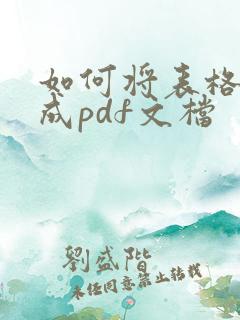 如何将表格
成pdf文档
劉盛階
未经同意禁止转载